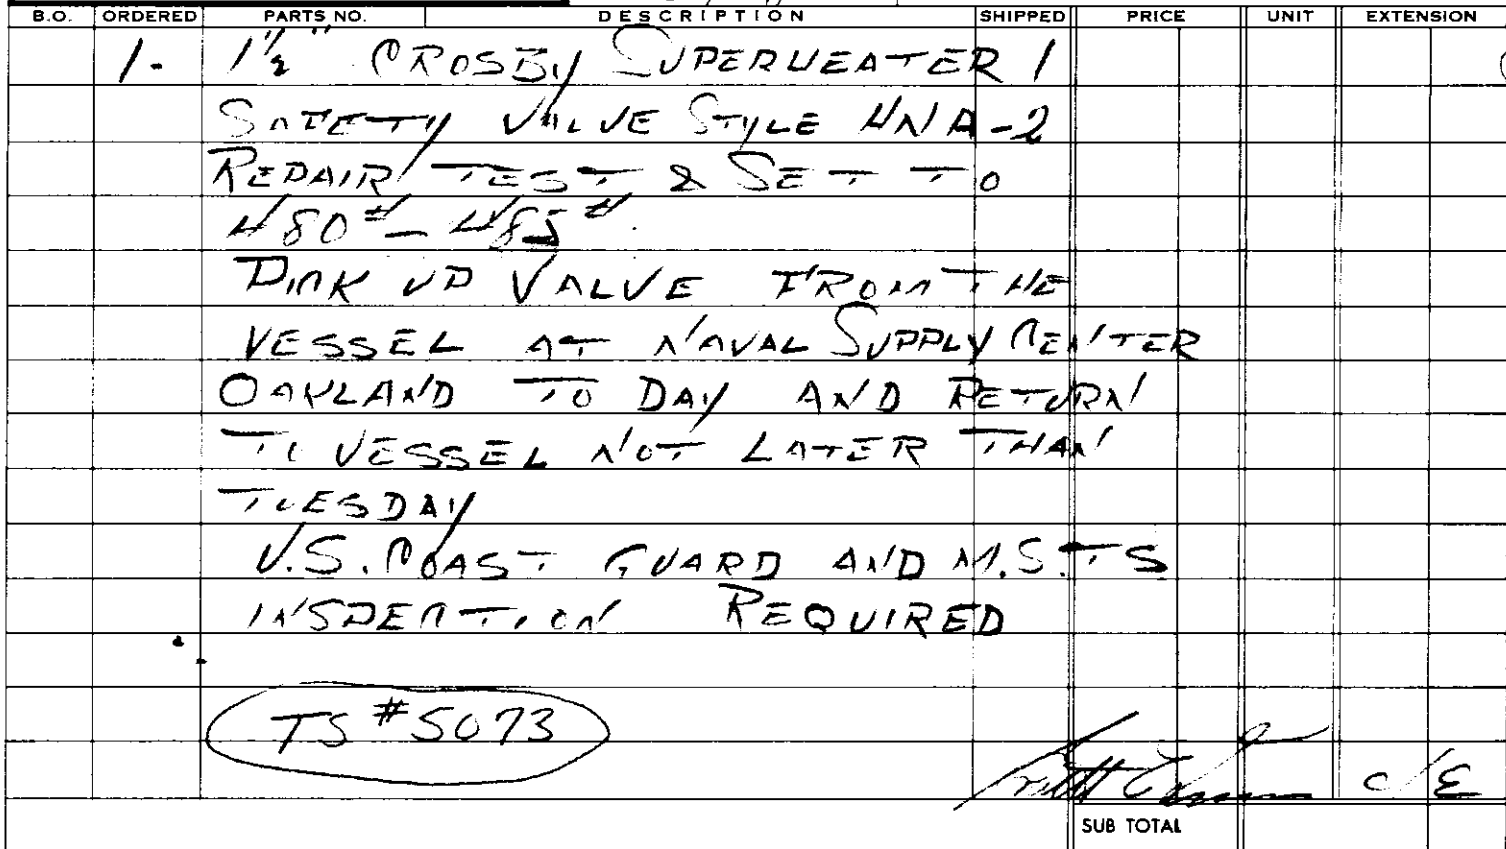 B.O. ORDERED PARTS NO. DESCRIPTION SHIPPED PRICE UNIT EXTENSION
1- 1½" CROSBY SUPERHEATER 1
SAFETY VALVE STYLE HNA-2
REPAIR TEST & SET TO
480# - 485#
PICK UP VALVE FROM THE
VESSEL AT NAVAL SUPPLY CENTER
OAKLAND TO DAY AND RETURN
TO VESSEL NOT LATER THAN
TUESDAY
U.S. COAST GUARD AND M.S.TS
INSPECTION REQUIRED
TS #5073
C/E
SUB TOTAL